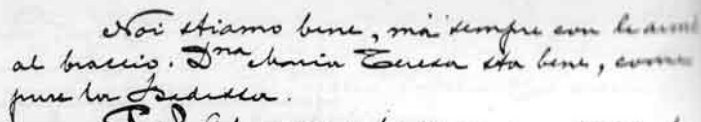 Noi stiamo bene, ma sempre con le armi
al braccio. Dna Maria Teresa sta bene, come
pure la